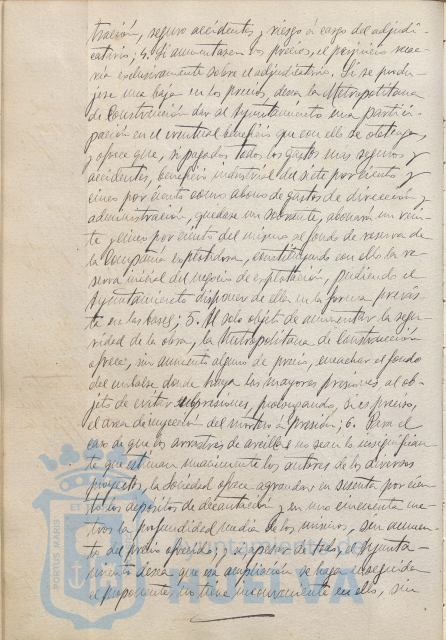 tración, seguro accidentes y riesgo á cargo del adjudi-
catario; 4. Si aumentasen los precios, el perjuicio recae-
ría exclusivamente sobre el adjudicatario. Si se produ-
jese una baja en los precios, desea la Metropolitana
de Construcción dar al Ayuntamiento una partici-
pación en el eventual beneficio que con ello se obtenga,
y ofrece que, si pagados todos los gastos mas seguros y
accidentes, beneficio industrial del siete por ciento y
cinco por ciento como abono de gastos de dirección y
administración, quedase un sobrante, abonará un vein-
te y cinco por ciento del mismo al fondo de reserva de
la Compañía explotadora, constituyendo con ello la re-
serva inicial del negocio de explotación, pudiendo el
Ayuntamiento disponer de ella en la forma previs-
ta en las bases; 5. Al solo objeto de aumentar la segu-
ridad de la obra, la Metropolitana de Construcción
ofrece, sin aumento alguno de precio, el fondo
del embalse donde haya las mayores presiones al ob-
jeto de evitar subpresiones, prolongando, si es preciso,
el area de inyección del mortero á presión; 6. Para el
caso de que los arrastres de arcilla no sean lo insignifican-
te que estiman unanimemente los autores de los diversos
proyectos, la Sociedad ofrece agrandar en sesenta por cien-
to los depósitos de decantación y en uno cincuenta me-
tros la profundidad media de los mismos, sin aumen-
to del precio ofrecido; y si á pesar de todo, el Ayunta-
miento desea que esa ampliación se haga enseguida
el proponente no tiene inconveniente en ello, sin
PORTUS MARIS ET
Ayuntamiento de
HUELVA